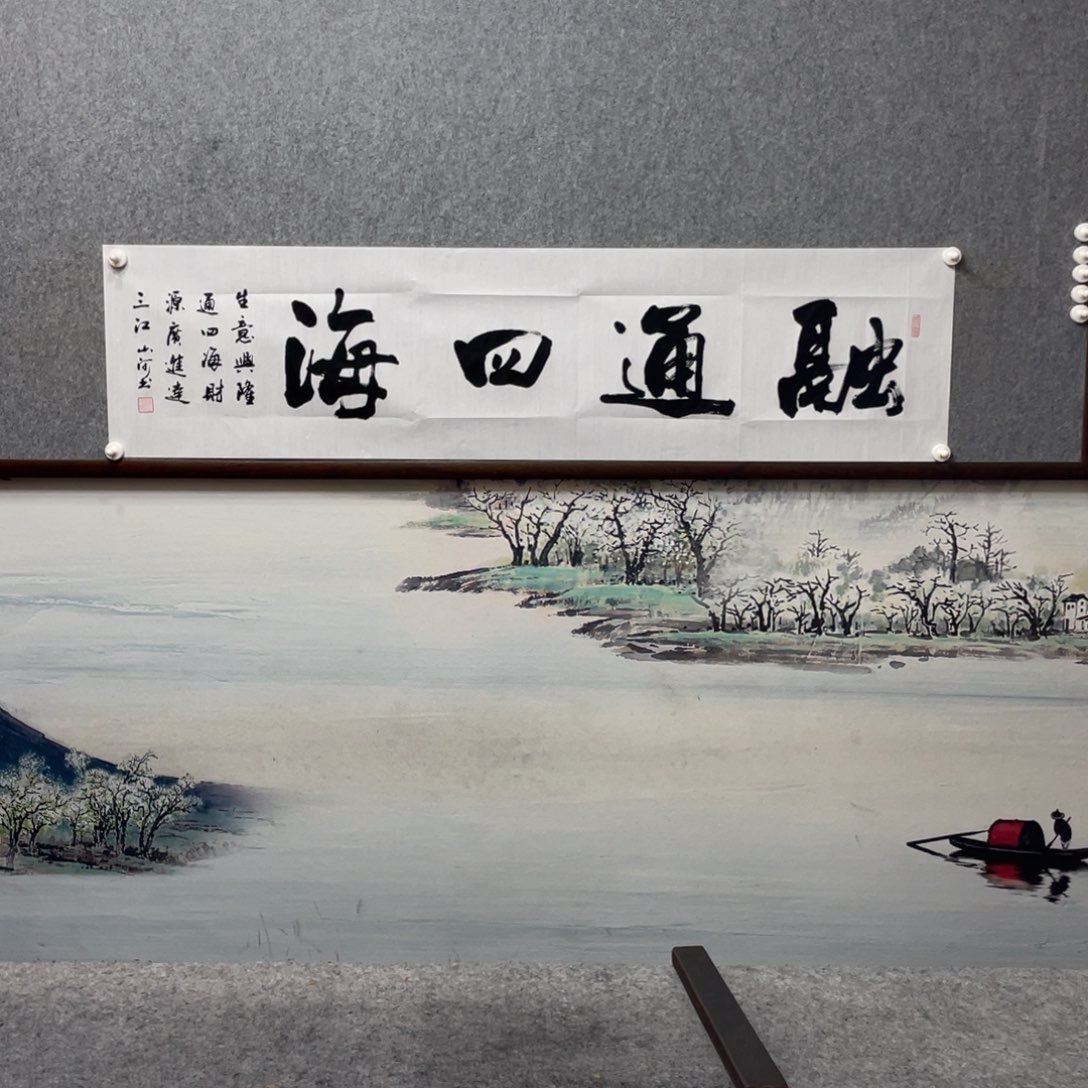 融通四海
生意興隆
通四海財
源廣進達
三江 山河书